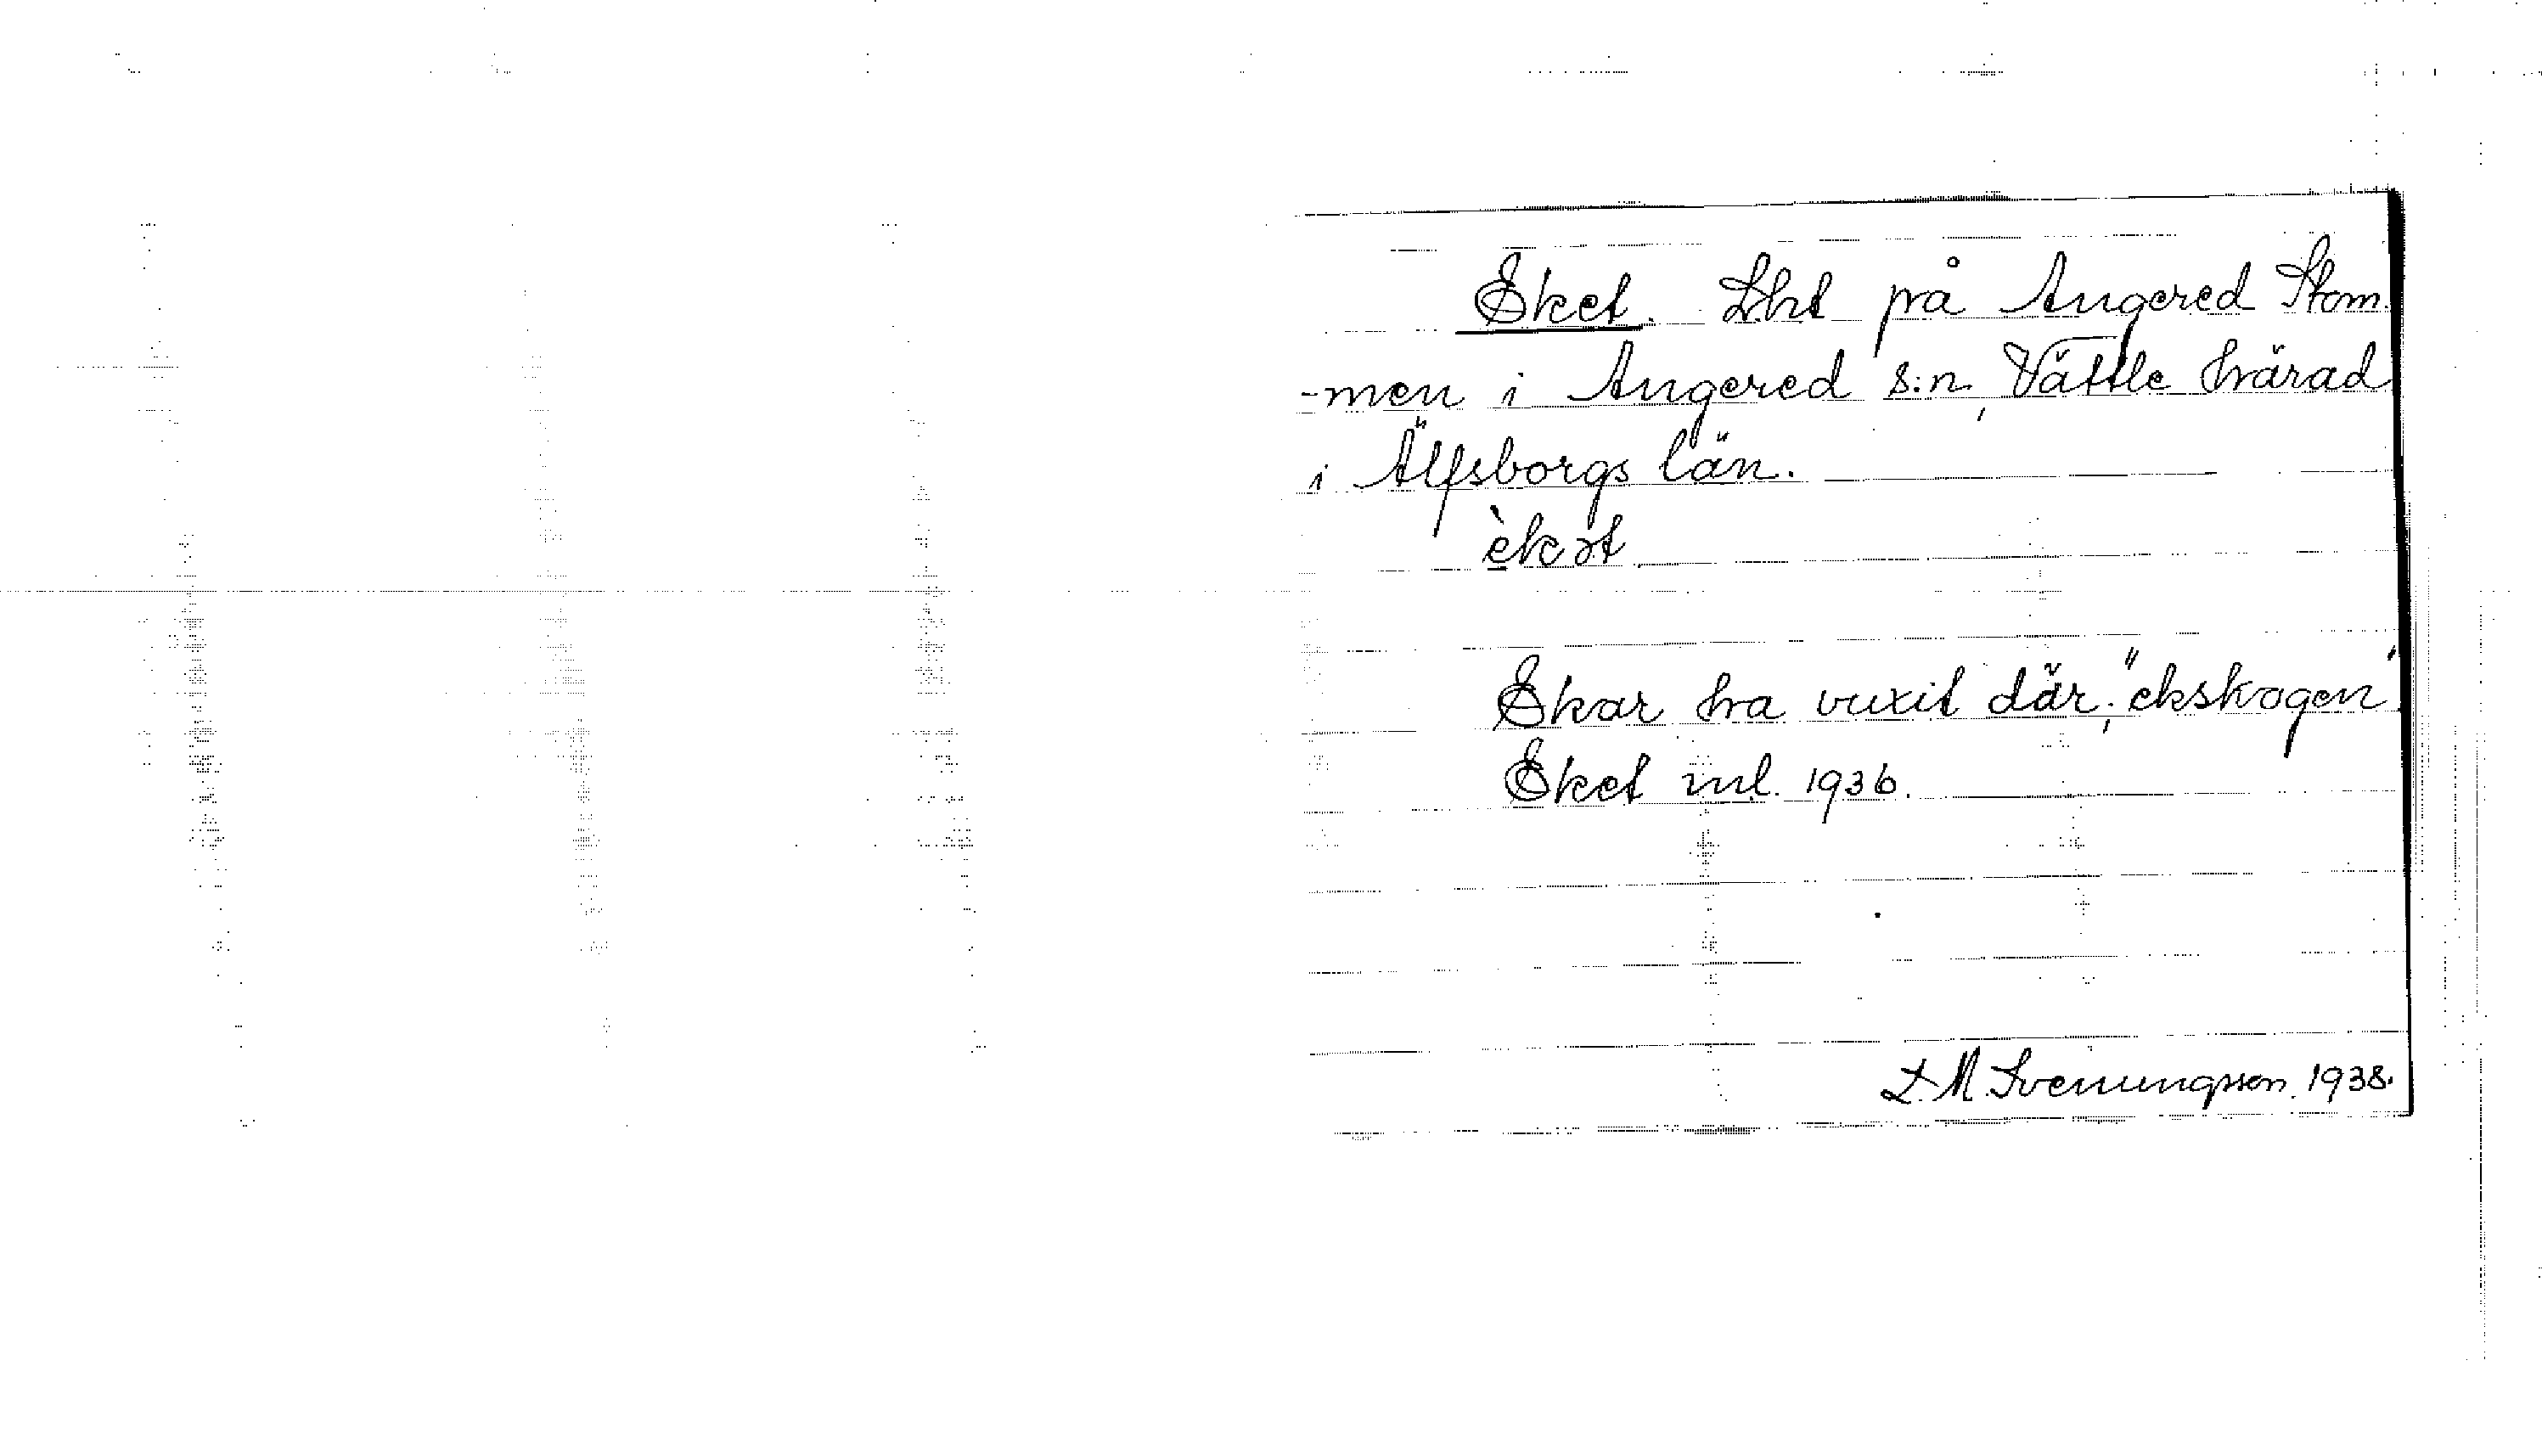 Eket. Lht på Angered Stom
-men i Angered s:n, Vättle härad
i Älfsborgs län.
èkət
Ekar ha vuxit där; "ekskogen"
Eket inl. 1936.
L. M. Svenungsson. 1938.